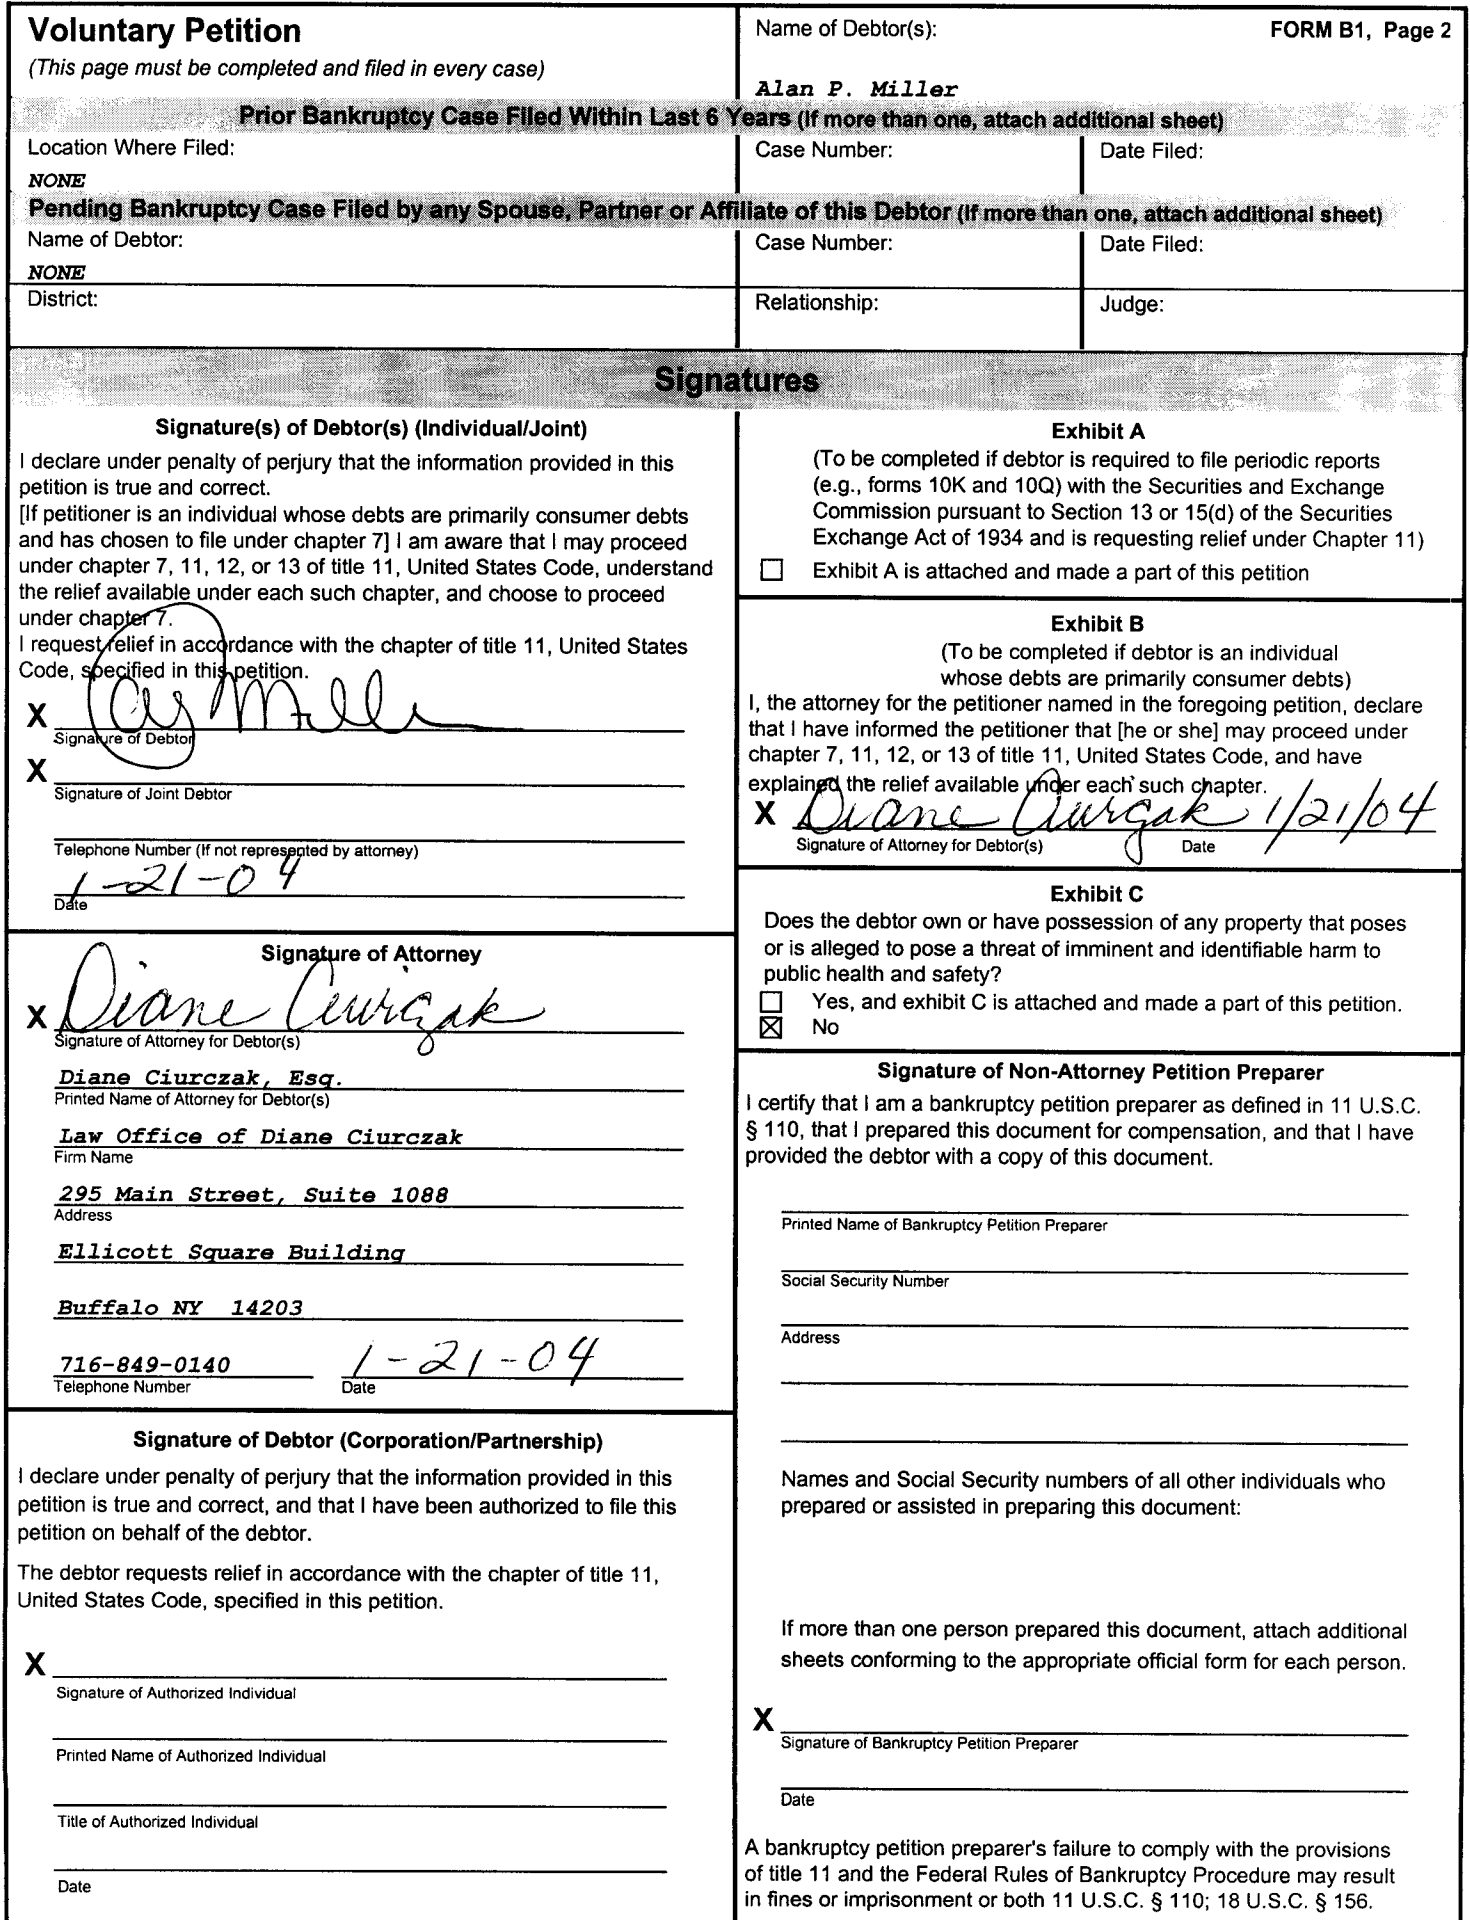 Voluntary Petition
(This page must be completed and filed in every case)
Name of Debtor(s):
FORM B1, Page 2
Alan P. Miller
Prior Bankruptcy Case Filed Within Last 6 Years (If more than one, attach additional sheet)
Location Where Filed:
NONE
Case Number:
Date Filed:
Pending Bankruptcy Case Filed by any Spouse, Partner or Affiliate of this Debtor (If more than one, attach additional sheet)
Name of Debtor:
NONE
Case Number:
Date Filed:
District:
Relationship:
Judge:
Signatures
Signature(s) of Debtor(s) (Individual/Joint)
I declare under penalty of perjury that the information provided in this
petition is true and correct.
[If petitioner is an individual whose debts are primarily consumer debts
and has chosen to file under chapter 7] I am aware that I may proceed
under chapter 7, 11, 12, or 13 of title 11, United States Code, understand
the relief available under each such chapter, and choose to proceed
under chapter 7.
I request relief in accordance with the chapter of title 11, United States
Code, specified in this petition.
X Miller
Signature of Debtor
X
Signature of Joint Debtor
Telephone Number (If not represented by attorney)
1-21-04
Date
Signature of Attorney
X Diane Ciurczak
Signature of Attorney for Debtor(s)
Diane Ciurczak, Esq.
Printed Name of Attorney for Debtor(s)
Law Office of Diane Ciurczak
Firm Name
295 Main Street, Suite 1088
Address
Ellicott Square Building
Buffalo NY 14203
716-849-0140 1-21-04
Telephone Number Date
Signature of Debtor (Corporation/Partnership)
I declare under penalty of perjury that the information provided in this
petition is true and correct, and that I have been authorized to file this
petition on behalf of the debtor.
The debtor requests relief in accordance with the chapter of title 11,
United States Code, specified in this petition.
X
Signature of Authorized Individual
Printed Name of Authorized Individual
Title of Authorized Individual
Date
Exhibit A
(To be completed if debtor is required to file periodic reports
(e.g., forms 10K and 10Q) with the Securities and Exchange
Commission pursuant to Section 13 or 15(d) of the Securities
Exchange Act of 1934 and is requesting relief under Chapter 11)
☐ Exhibit A is attached and made a part of this petition
Exhibit B
(To be completed if debtor is an individual
whose debts are primarily consumer debts)
I, the attorney for the petitioner named in the foregoing petition, declare
that I have informed the petitioner that [he or she] may proceed under
chapter 7, 11, 12, or 13 of title 11, United States Code, and have
explained the relief available under each such chapter.
X Diane Ciurczak 1/21/04
Signature of Attorney for Debtor(s) Date
Exhibit C
Does the debtor own or have possession of any property that poses
or is alleged to pose a threat of imminent and identifiable harm to
public health and safety?
☐ Yes, and exhibit C is attached and made a part of this petition.
☒ No
Signature of Non-Attorney Petition Preparer
I certify that I am a bankruptcy petition preparer as defined in 11 U.S.C.
§ 110, that I prepared this document for compensation, and that I have
provided the debtor with a copy of this document.
Printed Name of Bankruptcy Petition Preparer
Social Security Number
Address
Names and Social Security numbers of all other individuals who
prepared or assisted in preparing this document:
If more than one person prepared this document, attach additional
sheets conforming to the appropriate official form for each person.
X
Signature of Bankruptcy Petition Preparer
Date
A bankruptcy petition preparer's failure to comply with the provisions
of title 11 and the Federal Rules of Bankruptcy Procedure may result
in fines or imprisonment or both 11 U.S.C. § 110; 18 U.S.C. § 156.